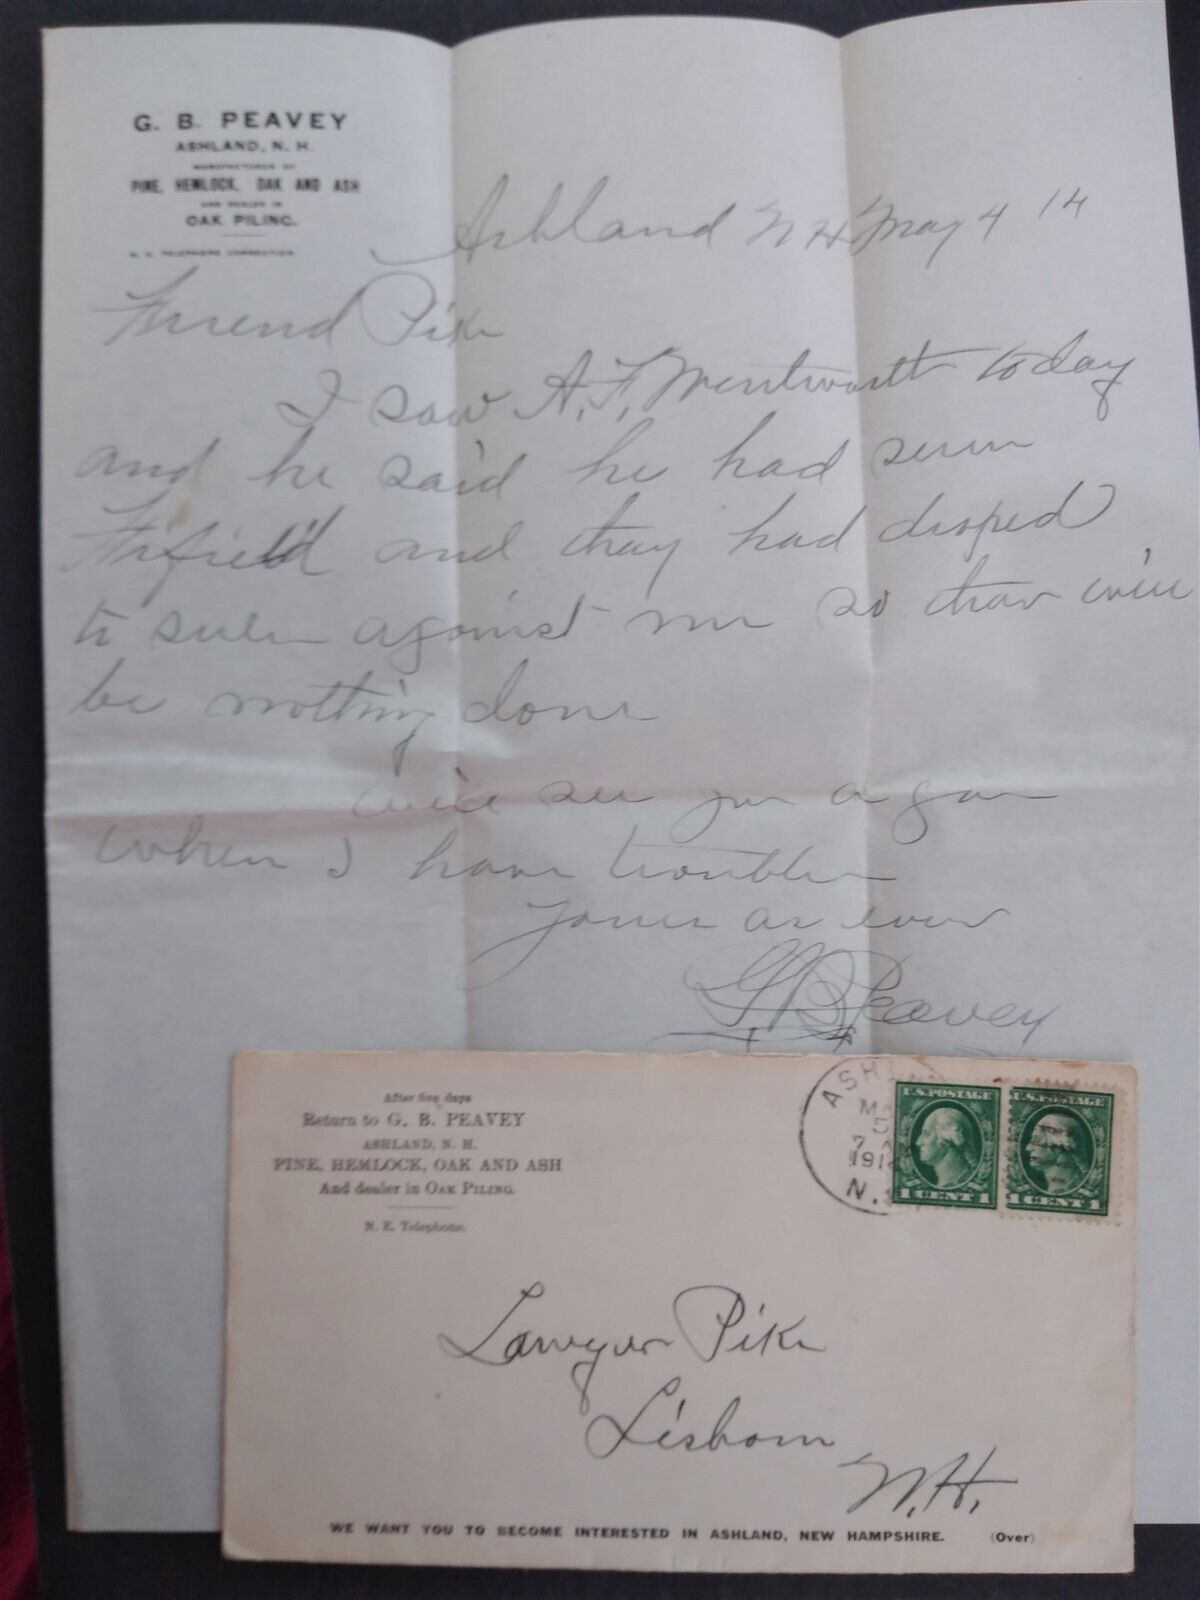 G. B. PEAVEY
ASHLAND, N. H.
MANUFACTURER OF
PINE, HEMLOCK, OAK AND ASH
AND DEALER IN
OAK PILING.
N. E. TELEPHONE CONNECTION
Ashland N H May 4 14
Friend Pike
I saw A. F. Wentworth today
and he said he had seen
Fifield and thay had droped
to suen against me so thar will
be nothing done
will see you a gan
when I have trouble
Yours as ever
G B Peavey
After five days
Return to G. B. PEAVEY
ASHLAND, N. H.
PINE, HEMLOCK, OAK AND ASH
And dealer in OAK PILING.
N. E. Telephone.
ASHL
MA
5
7 A
1914
N.
U.S. POSTAGE
1 CENT 1
U.S. POSTAGE
1 CENT 1
Lawyer Pike
Lisbon
N.H.
WE WANT YOU TO BECOME INTERESTED IN ASHLAND, NEW HAMPSHIRE. (Over)